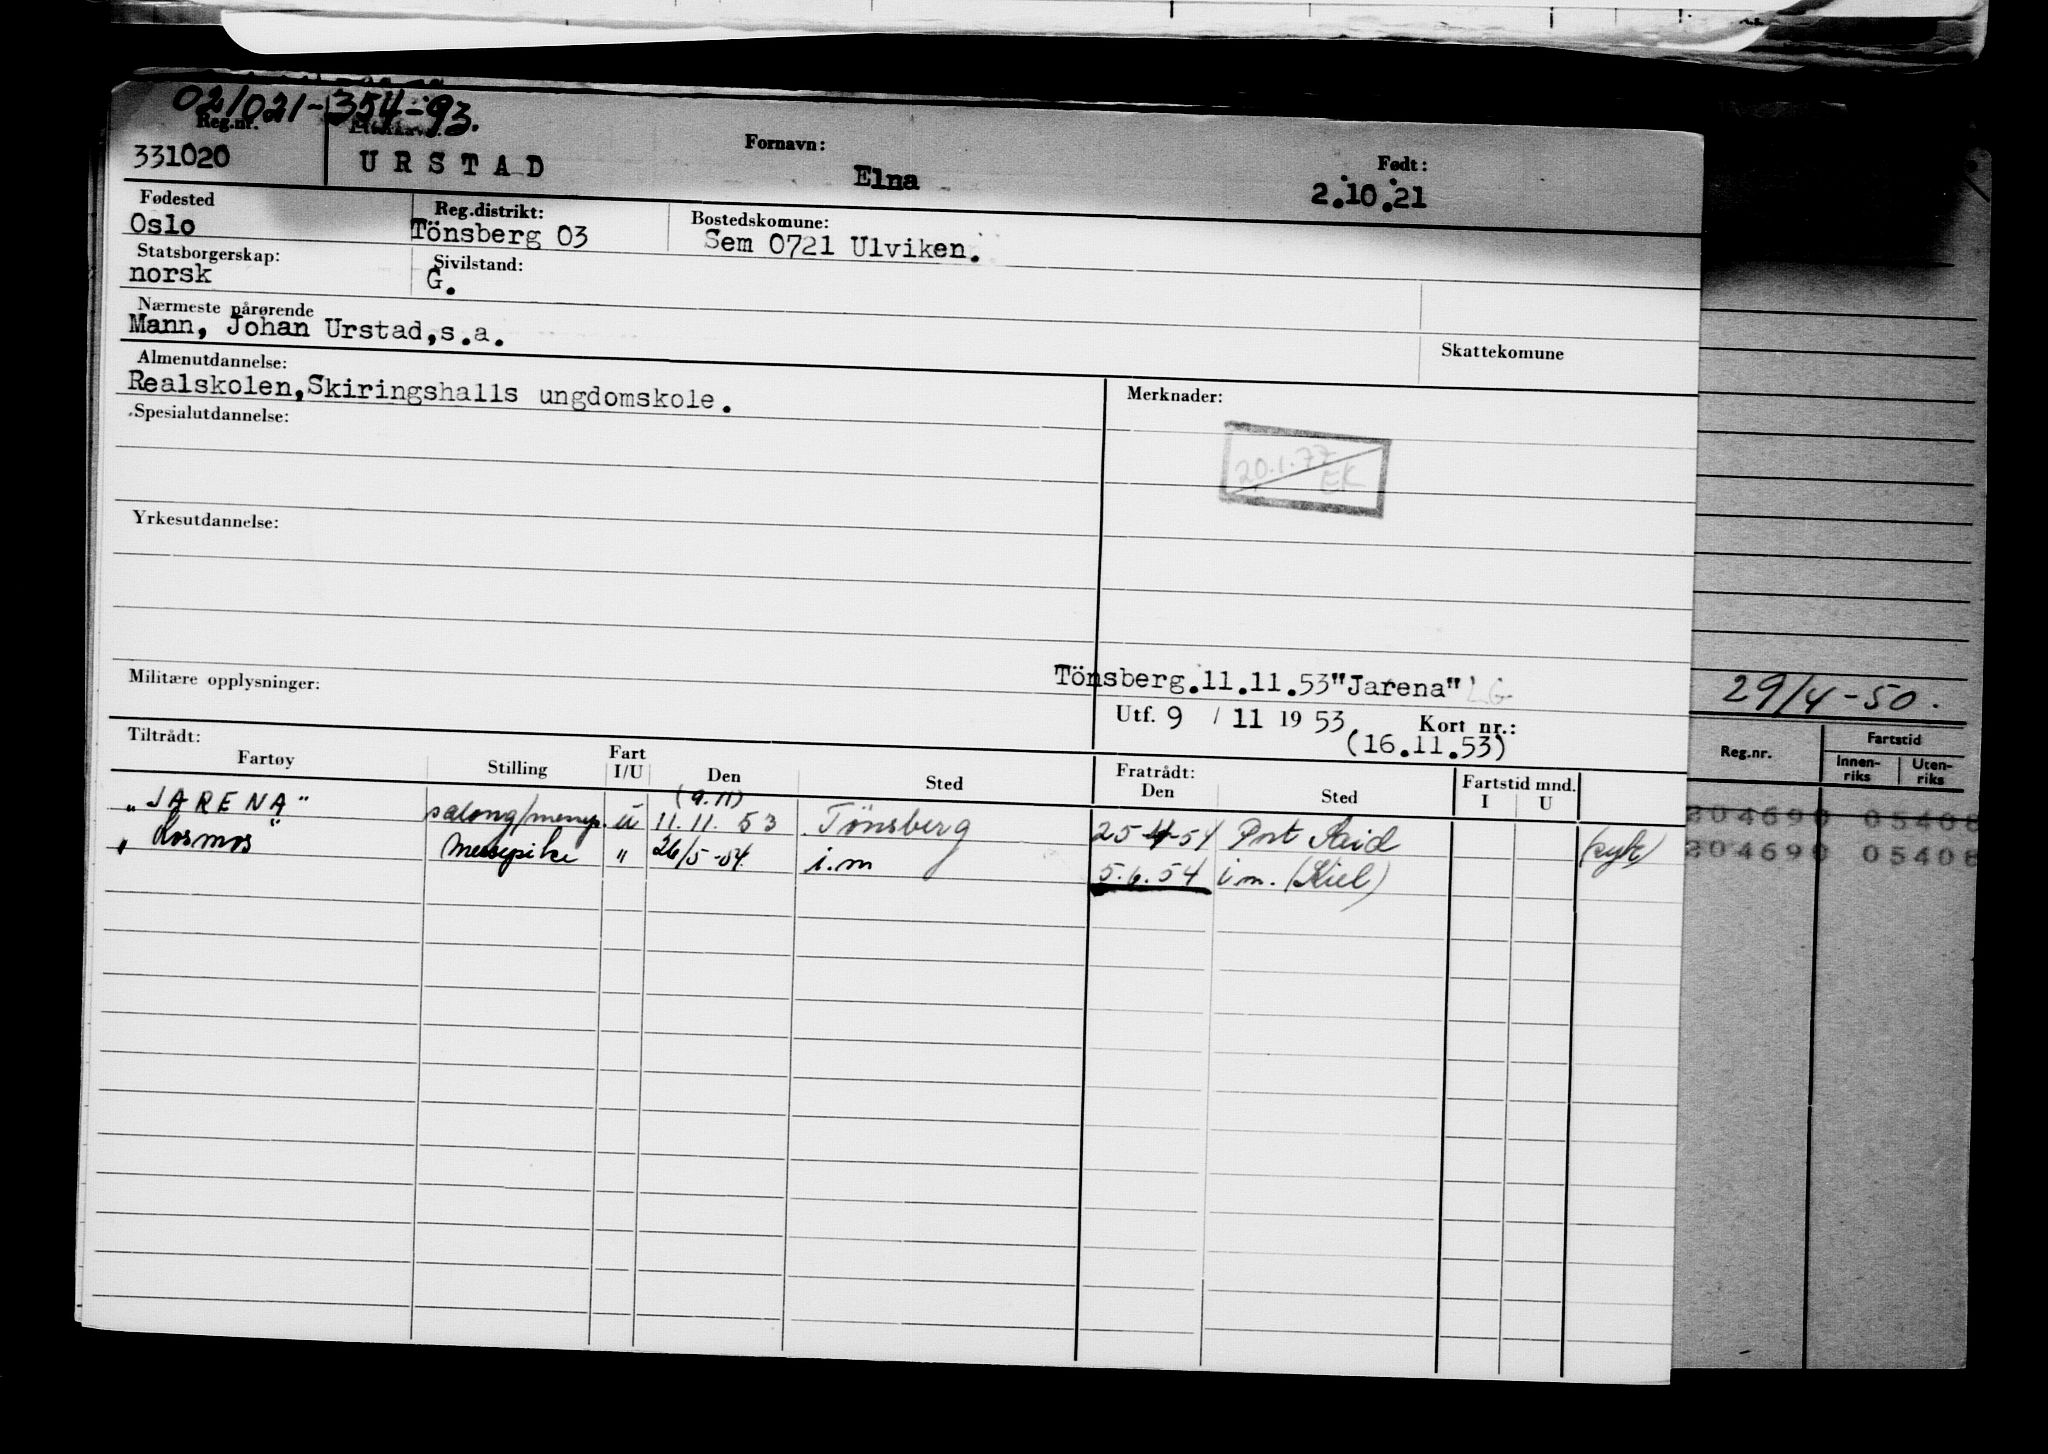 02/1021-354-93.
Reg.nr. Fornavn: Født:
331020 URSTAD Elna 2.10.21
Fødested Reg.distrikt: Bostedskomune:
Oslo Tönsberg 03 Sem 0721 Ulviken.
Statsborgerskap: Sivilstand:
norsk G.
Nærmeste pårørende
Mann, Johan Urstad,s.a.
Skattekomune
Almenutdannelse: Merknader:
Realskolen,Skiringshalls ungdomskole.
Spesialutdannelse:
20.1.77
EK
Yrkesutdannelse:
Militære opplysninger:
Tönsberg.11.11.53"Jarena" LG
29/4-50.
Utf. 9 / 11 19 53 Kort nr.:
(16.11.53)
Tiltrådt: Fratrådt: Fartstid mnd.
Fartøy Stilling Fart I/U Den Sted Den Sted I U
Reg.nr. Fartstid
Innen-riks Uten-riks
(9.11)
"JARENA" salong/messep. u 11.11.53 Tönsberg 25-4-54 Port Said (syk)
"Kosmos" Messepike " 26/5-54. i.m 5.6.54 i m. (Kiel)
204690 05408
204690 05408